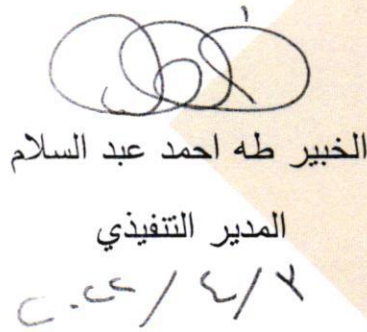 الخبير طه احمد عبد السلام
المدير التنفيذي
٣ / ٤ / ٢٠٢٢